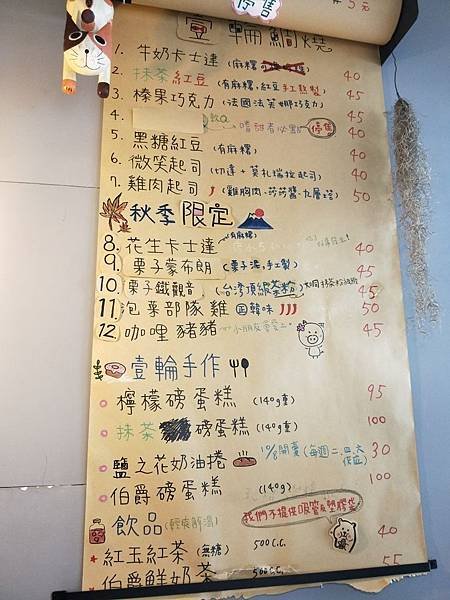 停售
5元
壹輪鯛燒
1. 牛奶卡士達 (麻糬
2. 抹茶紅豆 (有麻糬,紅豆手工熬製) 40
3. 榛果巧克力 (法國法芙娜巧克力) 45
4. 嗜甜者必點 停售 45
5. 黑糖紅豆 (有麻糬) 40
6. 微笑起司 (切達+莫札瑞拉起司) 40
7. 雞肉起司 (雞胸肉、莎莎醬、九層塔) 50
秋季限定
8. 花生卡士達 (有麻糬) 40
9. 栗子蒙布朗 (栗子泥,手工製) 45
10 栗子鐵觀音 (台灣頂級茶粉) 45
11 泡菜部隊雞 韓味 45
12 咖哩豬豬 小朋友 45
壹輪手作
檸檬磅蛋糕 (140g重) 95
抹茶磅蛋糕 (140g重) 100
鹽之花奶油捲 10/8開賣 (每週二.四.六 30
伯爵磅蛋糕 (140g) 100
我們不提供吸管及塑膠袋
飲品 (輕爽解渴)
紅玉紅茶 (無糖) 500c.c. 40
伯爵鮮奶茶 500c.c. 55